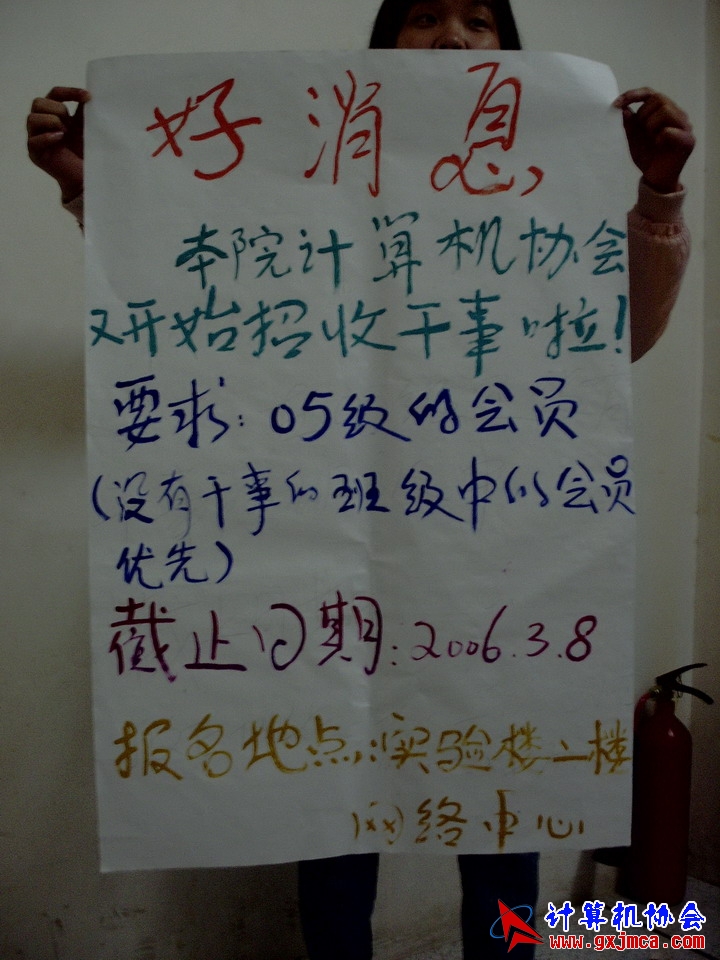 好消息
本院计算机协会
又开始招收干事啦!
要求:05级的会员
(没有干事的班级中的会员
优先)
截止日期:2006.3.8
报名地点:实验楼二楼
网络中心
计算机协会
www.gxjmca.com